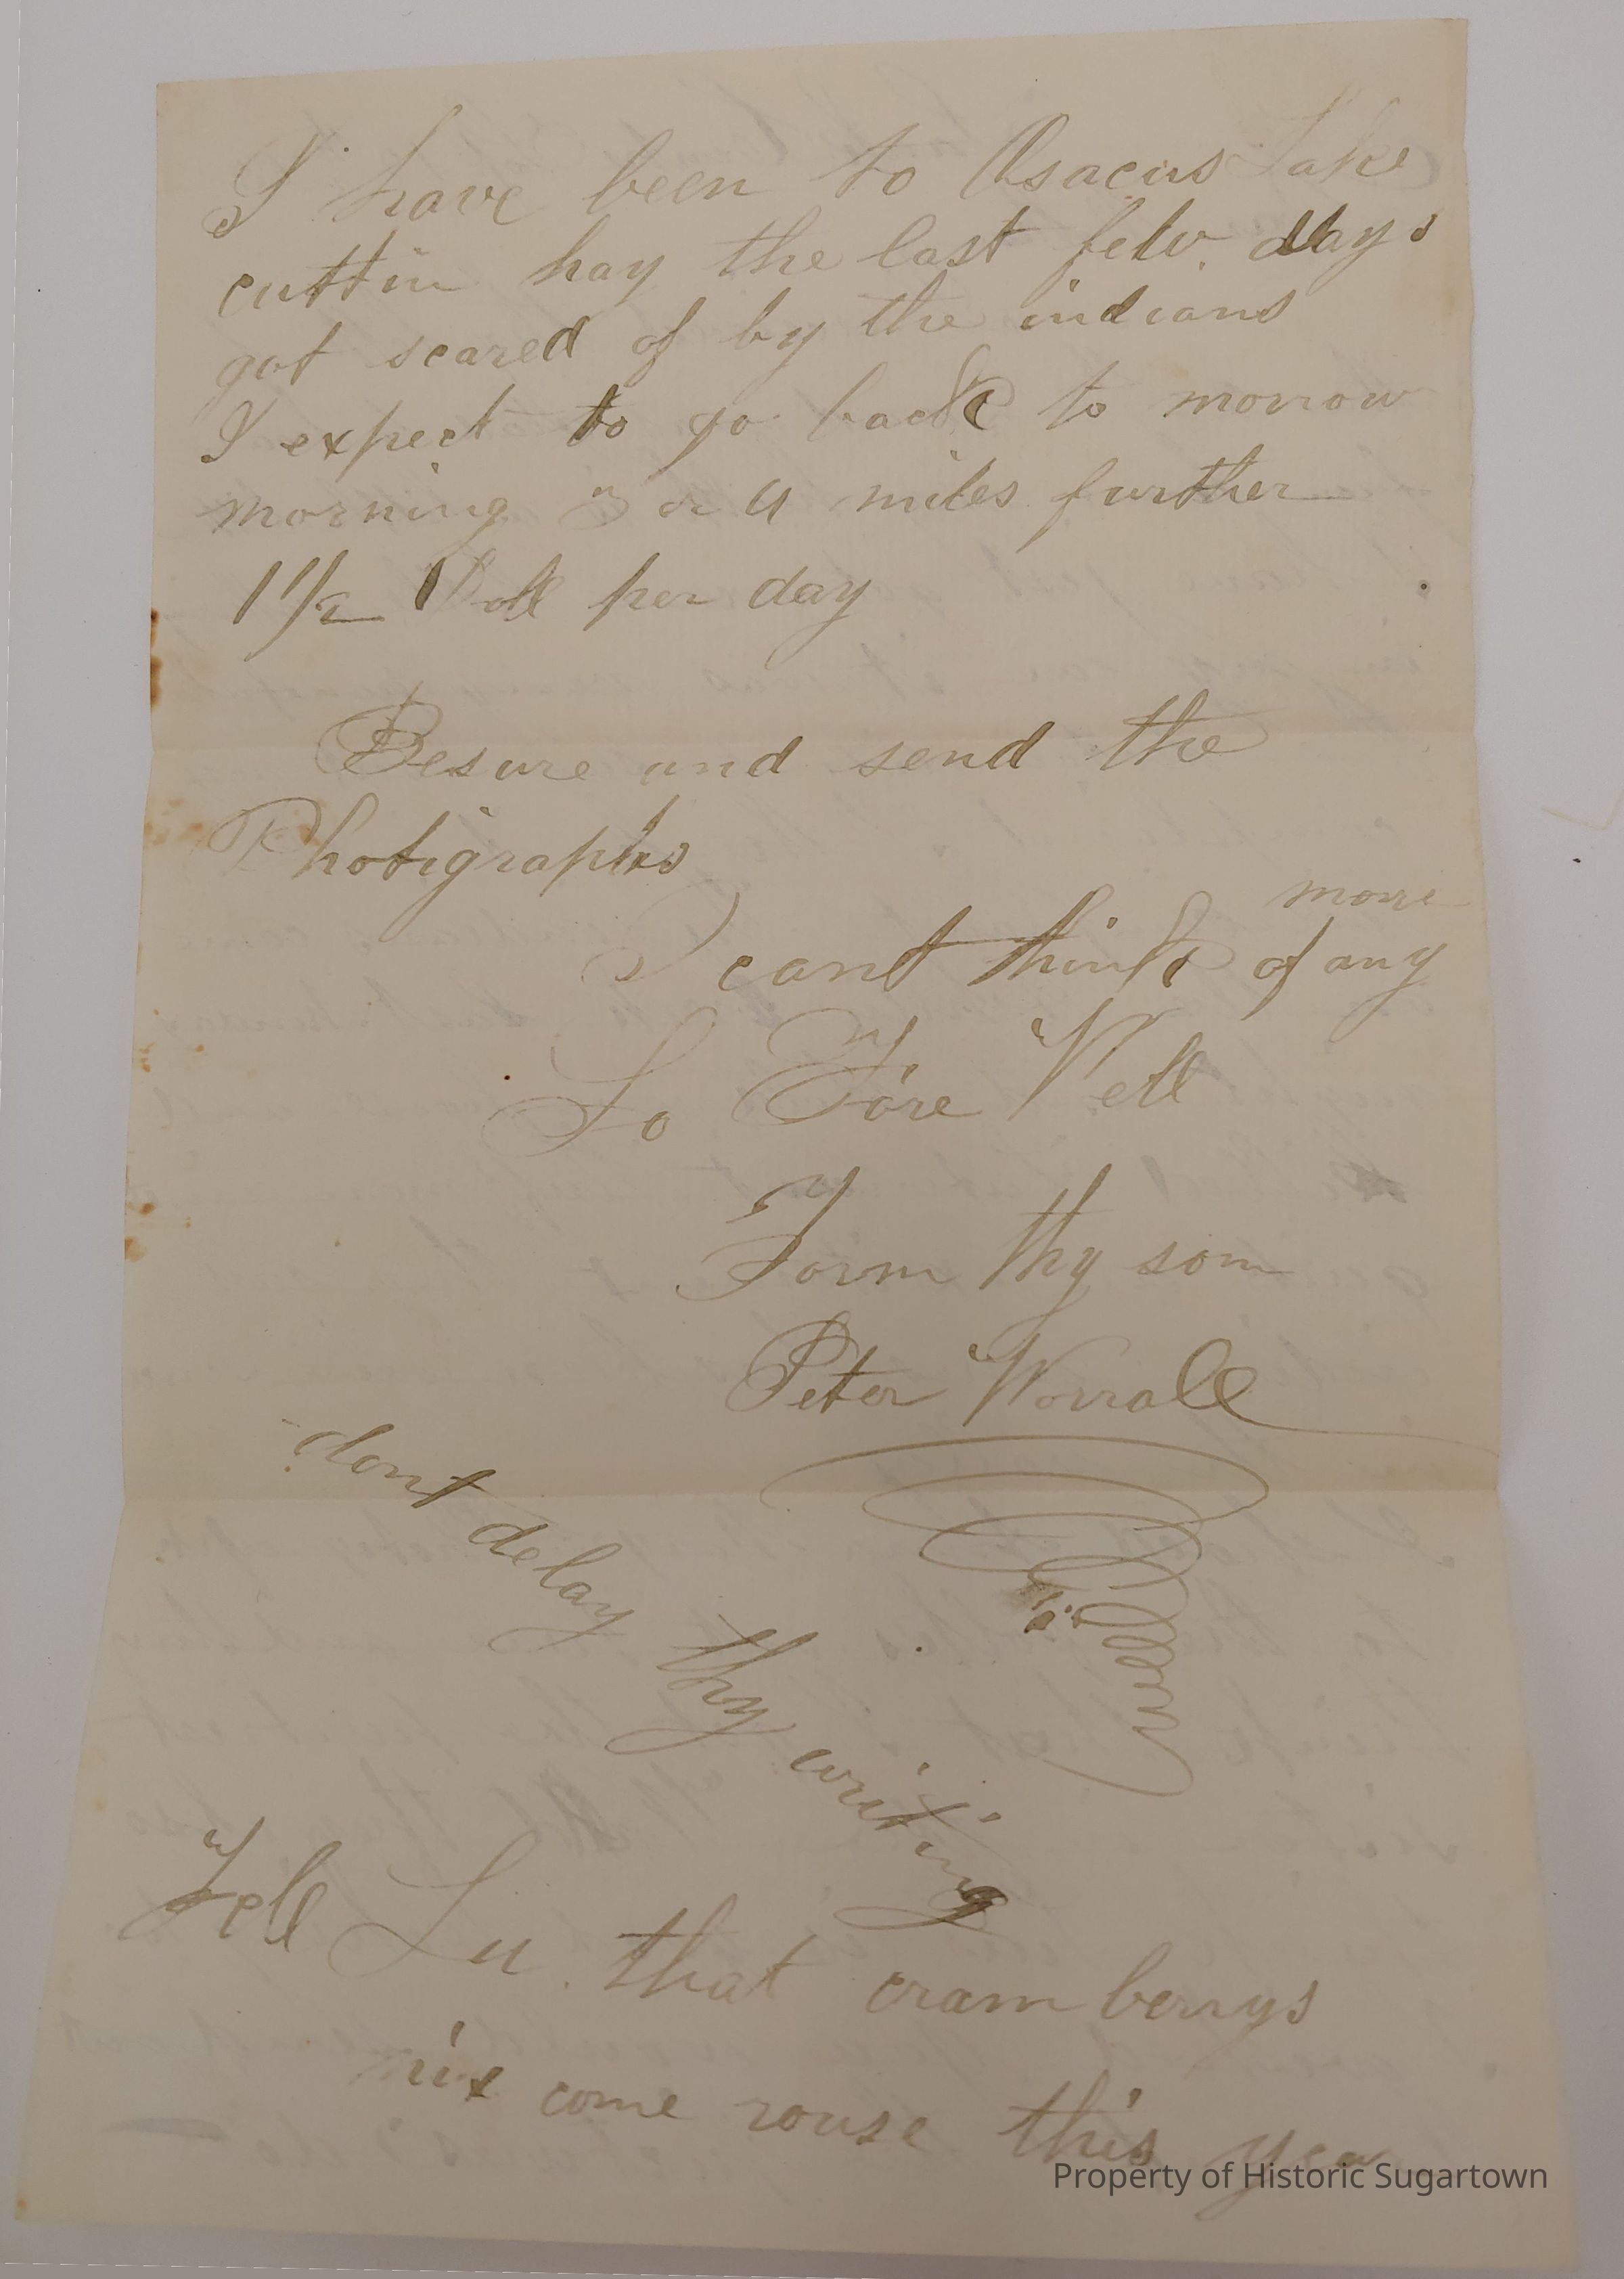 I have been to Osacus Lake
cuttin hay the last few days
got scared of by the indians
I expect to go back to morrow
morning 3 or 4 miles further
1 1/2 Doll per day
Besure and send the
Photigraphs
more
I cant think of any
So Fare Vell
Form thy son
Peter Worrall
dont delay thy writing
Tell Lu that cramberrys
nix come rouse this year
Property of Historic Sugartown